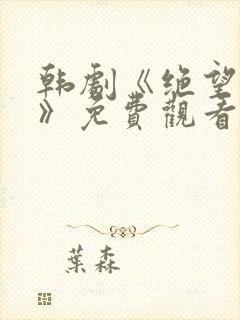 韩劇《绝望
》免費觀看
葉森